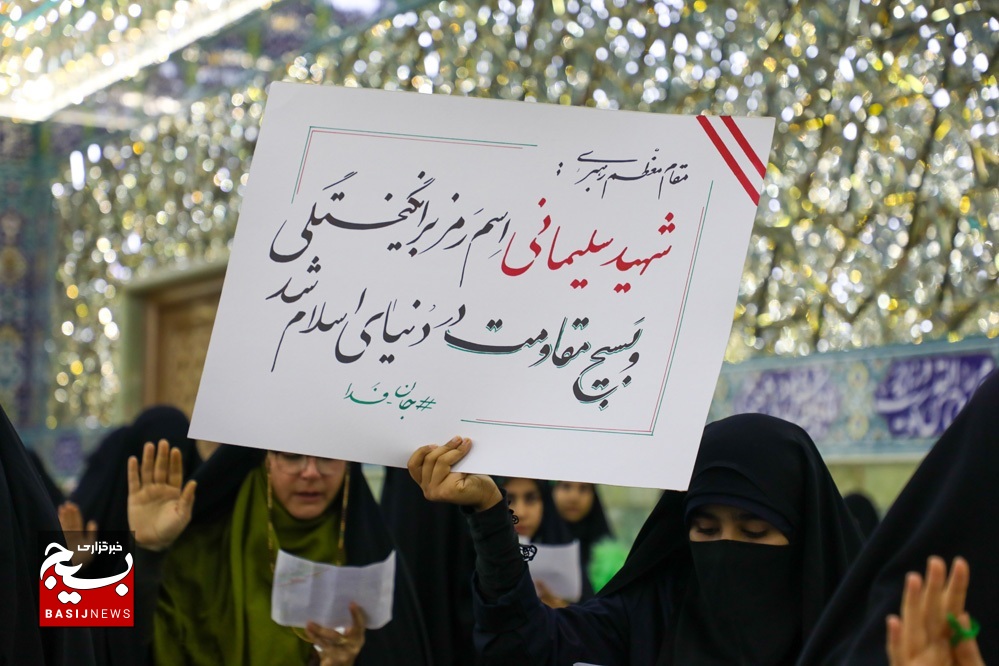 مقام معظّم رهبری :
شهید سلیمانی اسم رمز برانگیختگی
و بسیج مقاومت در دنیای اسلام شد
#جان_فدا
خبرگزاری
بسیج
BASIJNEWS